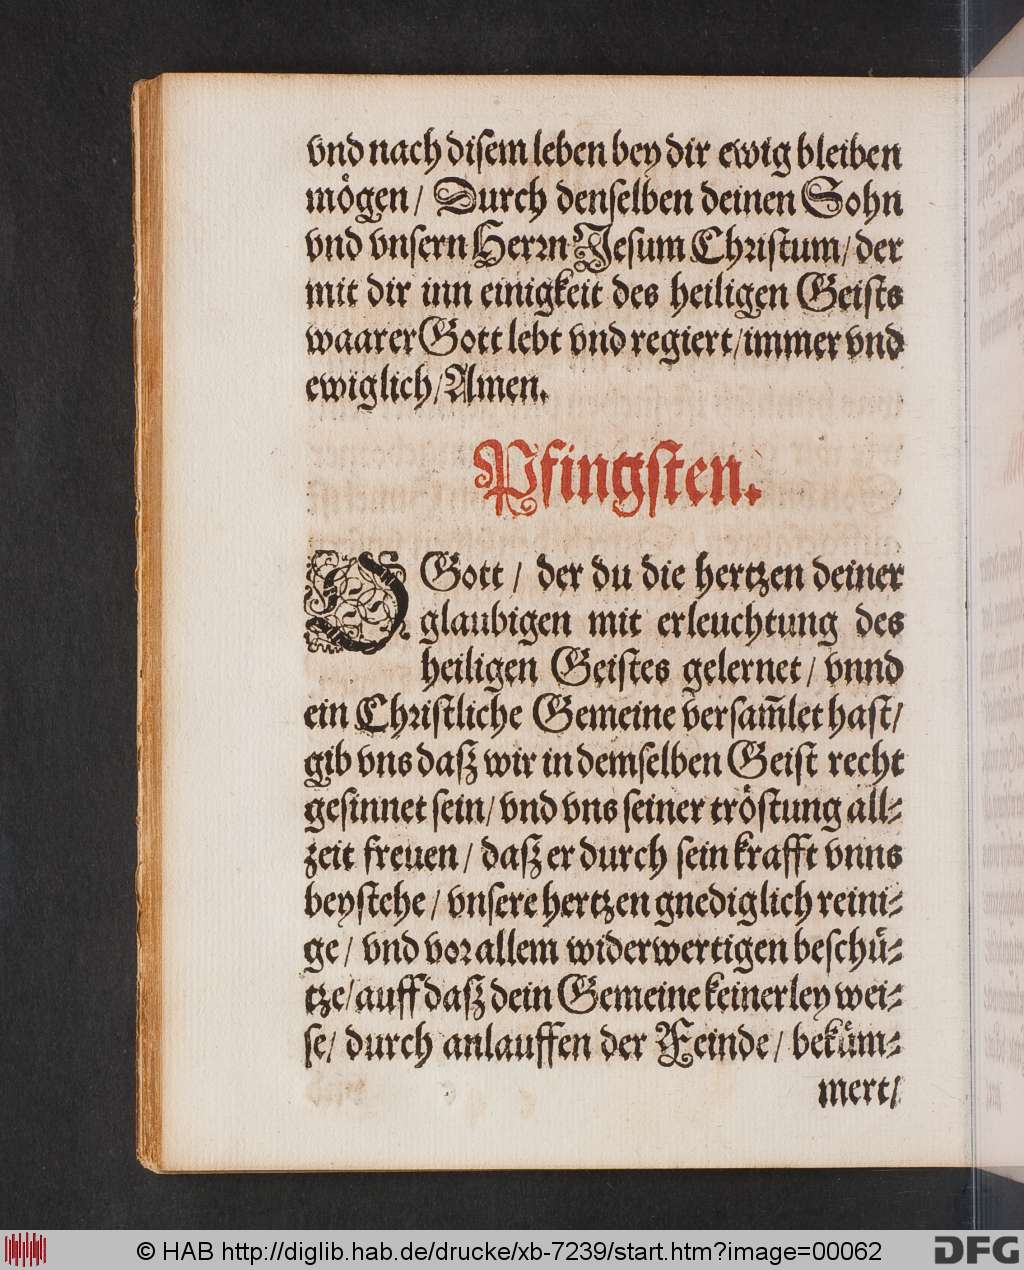 vnd nach disem leben bey dir ewig bleiben
mögen / Durch denselben deinen Sohn
vnd vnsern Herrn Jesum Christum / der
mit dir inn einigkeit des heiligen Geists
waarer Gott lebt vnd regiert / immer vnd
ewiglich / Amen.
Pfingsten.
O Gott / der du die hertzen deiner
glaubigen mit erleuchtung des
heiligen Geistes gelernet / vnnd
ein Christliche Gemeine versam̃let hast /
gib vns daß wir in demselben Geist recht
gesinnet sein / vnd vns seiner tröstung all-
zeit freuen / daß er durch sein krafft vnns
beystehe / vnsere hertzen gnediglich reini-
ge / vnd vor allem widerwertigen beschü-
tze / auff daß dein Gemeine keinerley wei-
se / durch anlauffen der Feinde / beküm-
mert /
© HAB http://diglib.hab.de/drucke/xb-7239/start.htm?image=00062
DFG